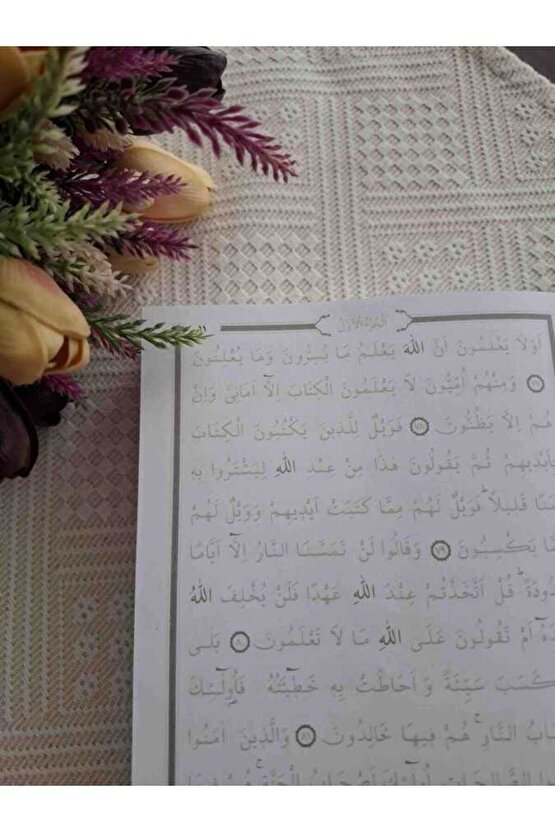 اَلْجُزْءُ الْاَوَّلُ
اَوَلَا يَعْلَمُونَ اَنَّ اللّٰهَ يَعْلَمُ مَا يُسِرُّونَ وَمَا يُعْلِنُونَ
﴿٧٧﴾ وَمِنْهُمْ اُمِّيُّونَ لَا يَعْلَمُونَ الْكِتَابَ اِلَّٓا اَمَانِيَّ وَاِنْ
هُمْ اِلَّا يَظُنُّونَ ﴿٧٨﴾ فَوَيْلٌ لِلَّذِينَ يَكْتُبُونَ الْكِتَابَ
بِاَيْدِيهِمْ ثُمَّ يَقُولُونَ هٰذَا مِنْ عِنْدِ اللّٰهِ لِيَشْتَرُوا بِهِ
قَلِيلًاۜ فَوَيْلٌ لَهُمْ مِمَّا كَتَبَتْ اَيْدِيهِمْ وَوَيْلٌ لَهُمْ
يَكْسِبُونَ ﴿٧٩﴾ وَقَالُوا لَنْ تَمَسَّنَا النَّارُ اِلَّٓا اَيَّامًا
قُلْ اَتَّخَذْتُمْ عِنْدَ اللّٰهِ عَهْدًا فَلَنْ يُخْلِفَ اللّٰهُ
اَمْ تَقُولُونَ عَلَى اللّٰهِ مَا لَا تَعْلَمُونَ ﴿٨٠﴾ بَلٰى
كَسَبَ سَيِّئَةً وَاَحَاطَتْ بِهِ خَطِٓيـَٔتُهُ فَاُولٰٓئِكَ
النَّارِۚ هُمْ فِيهَا خَالِدُونَ ﴿٨١﴾ وَالَّذِينَ اٰمَنُوا
الصَّالِحَاتِ اُولٰٓئِكَ اَصْحَابُ الْجَنَّةِۚ هُمْ فِيهَا